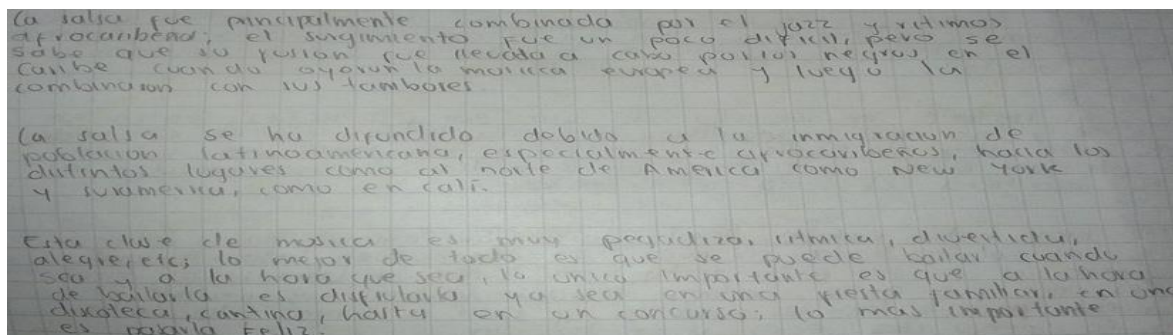 La salsa fue principalmente combinada por el jazz y ritmos
afrocaribeño, el surgimiento fue un poco dificil, pero se
sabe que su fusion fue llevada a cabo por los negros en el
Caribe cuando oyeron la musica europea y luego la
combinaron con sus tambores

La salsa se ha difundido debido a la inmigracion de
poblacion latinoamericana, especialmente afrocaribeños, hacia los
distintos lugares como al norte de America como New York
y suramerica, como en cali.

Esta clase de musica es muy pegadiza, ritmica, divertida,
alegre, etc; lo mejor de todo es que se puede bailar cuando
sea y a la hora que sea, lo unico importante es que a la hora
de bailarla es disfrutarla ya sea en una fiesta familiar, en una
discoteca, cantina, hasta en un concurso; lo mas importante
es pasarla Feliz.